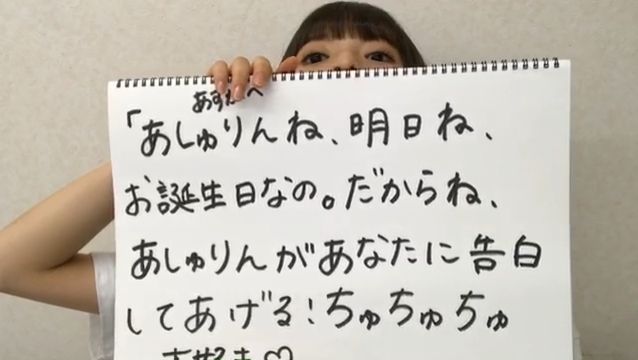 あすかへ
「あしゅりんね、明日ね、
お誕生日なの。だからね、
あしゅりんがあなたに告白
してあげる！ちゅちゅちゅ
大好き♡